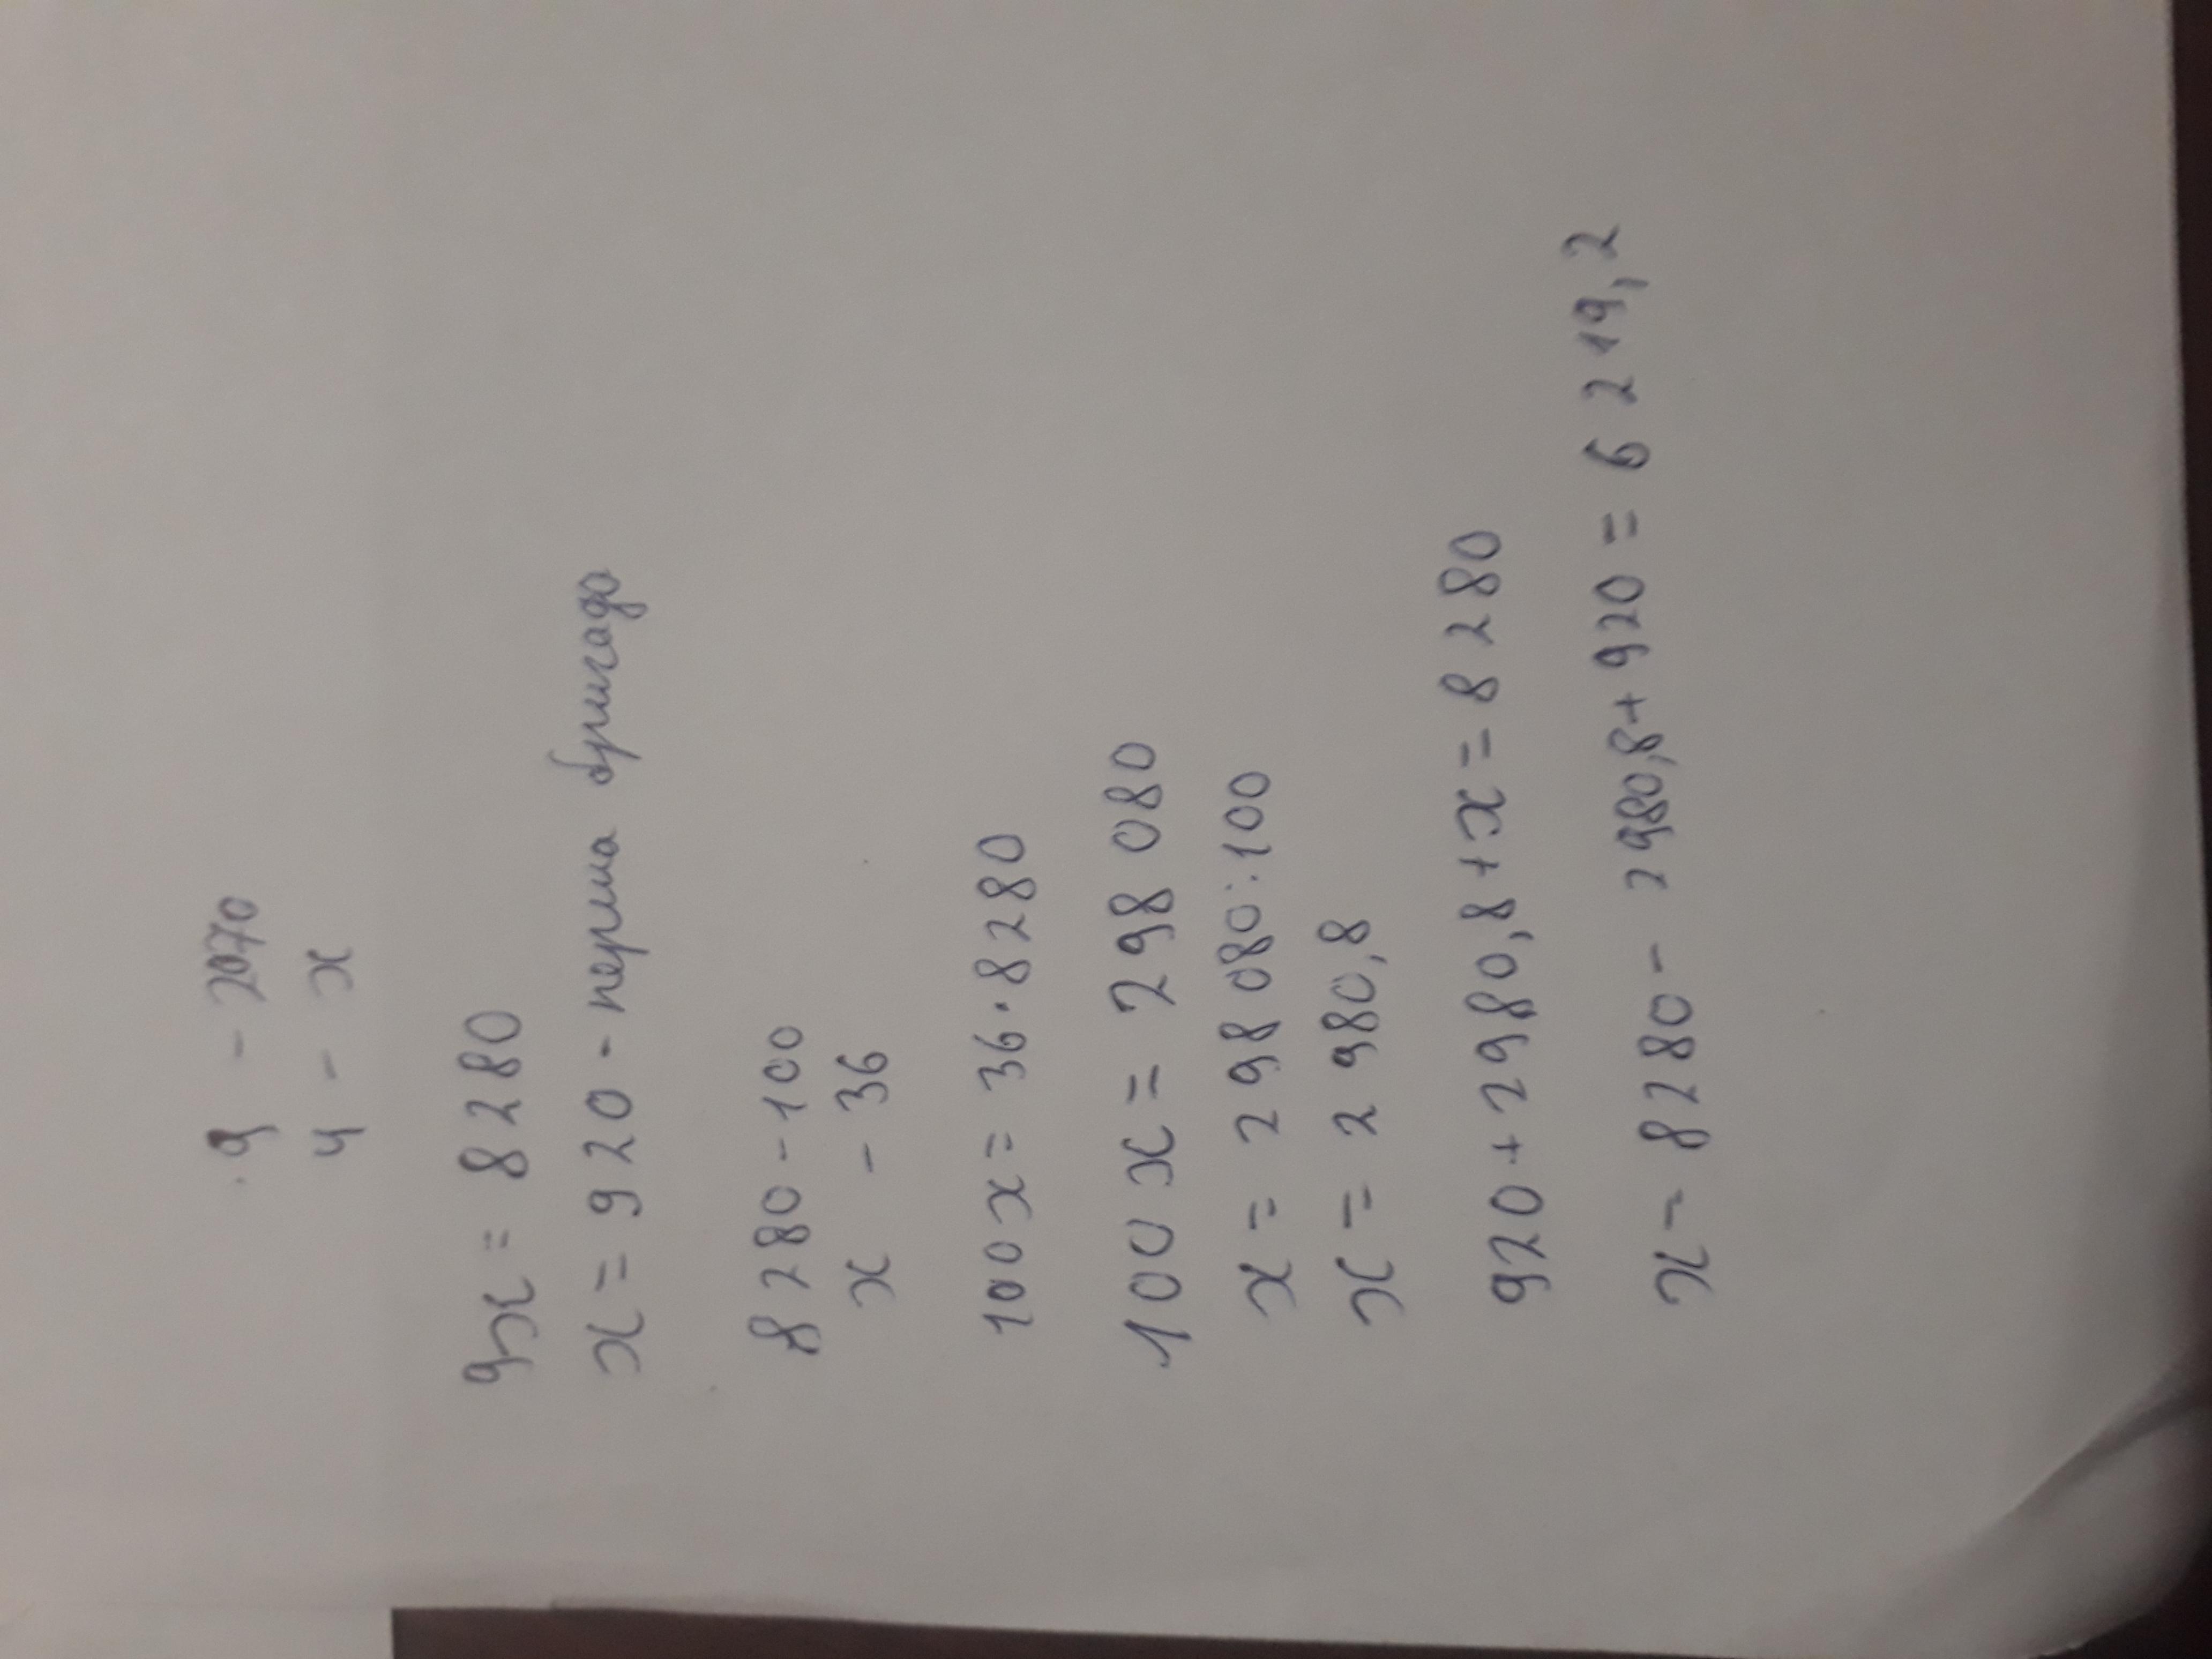 9 - 2070
4 - x
9x = 8280
x = 920 - перша бригада
8280 - 100
x - 36
100x = 36·8280
100x = 298 080
x = 298 080:100
x = 2 980,8
920 + 2980,8 + x = 8 280
x - 8280 - 2980,8 + 920 = 6 219,2